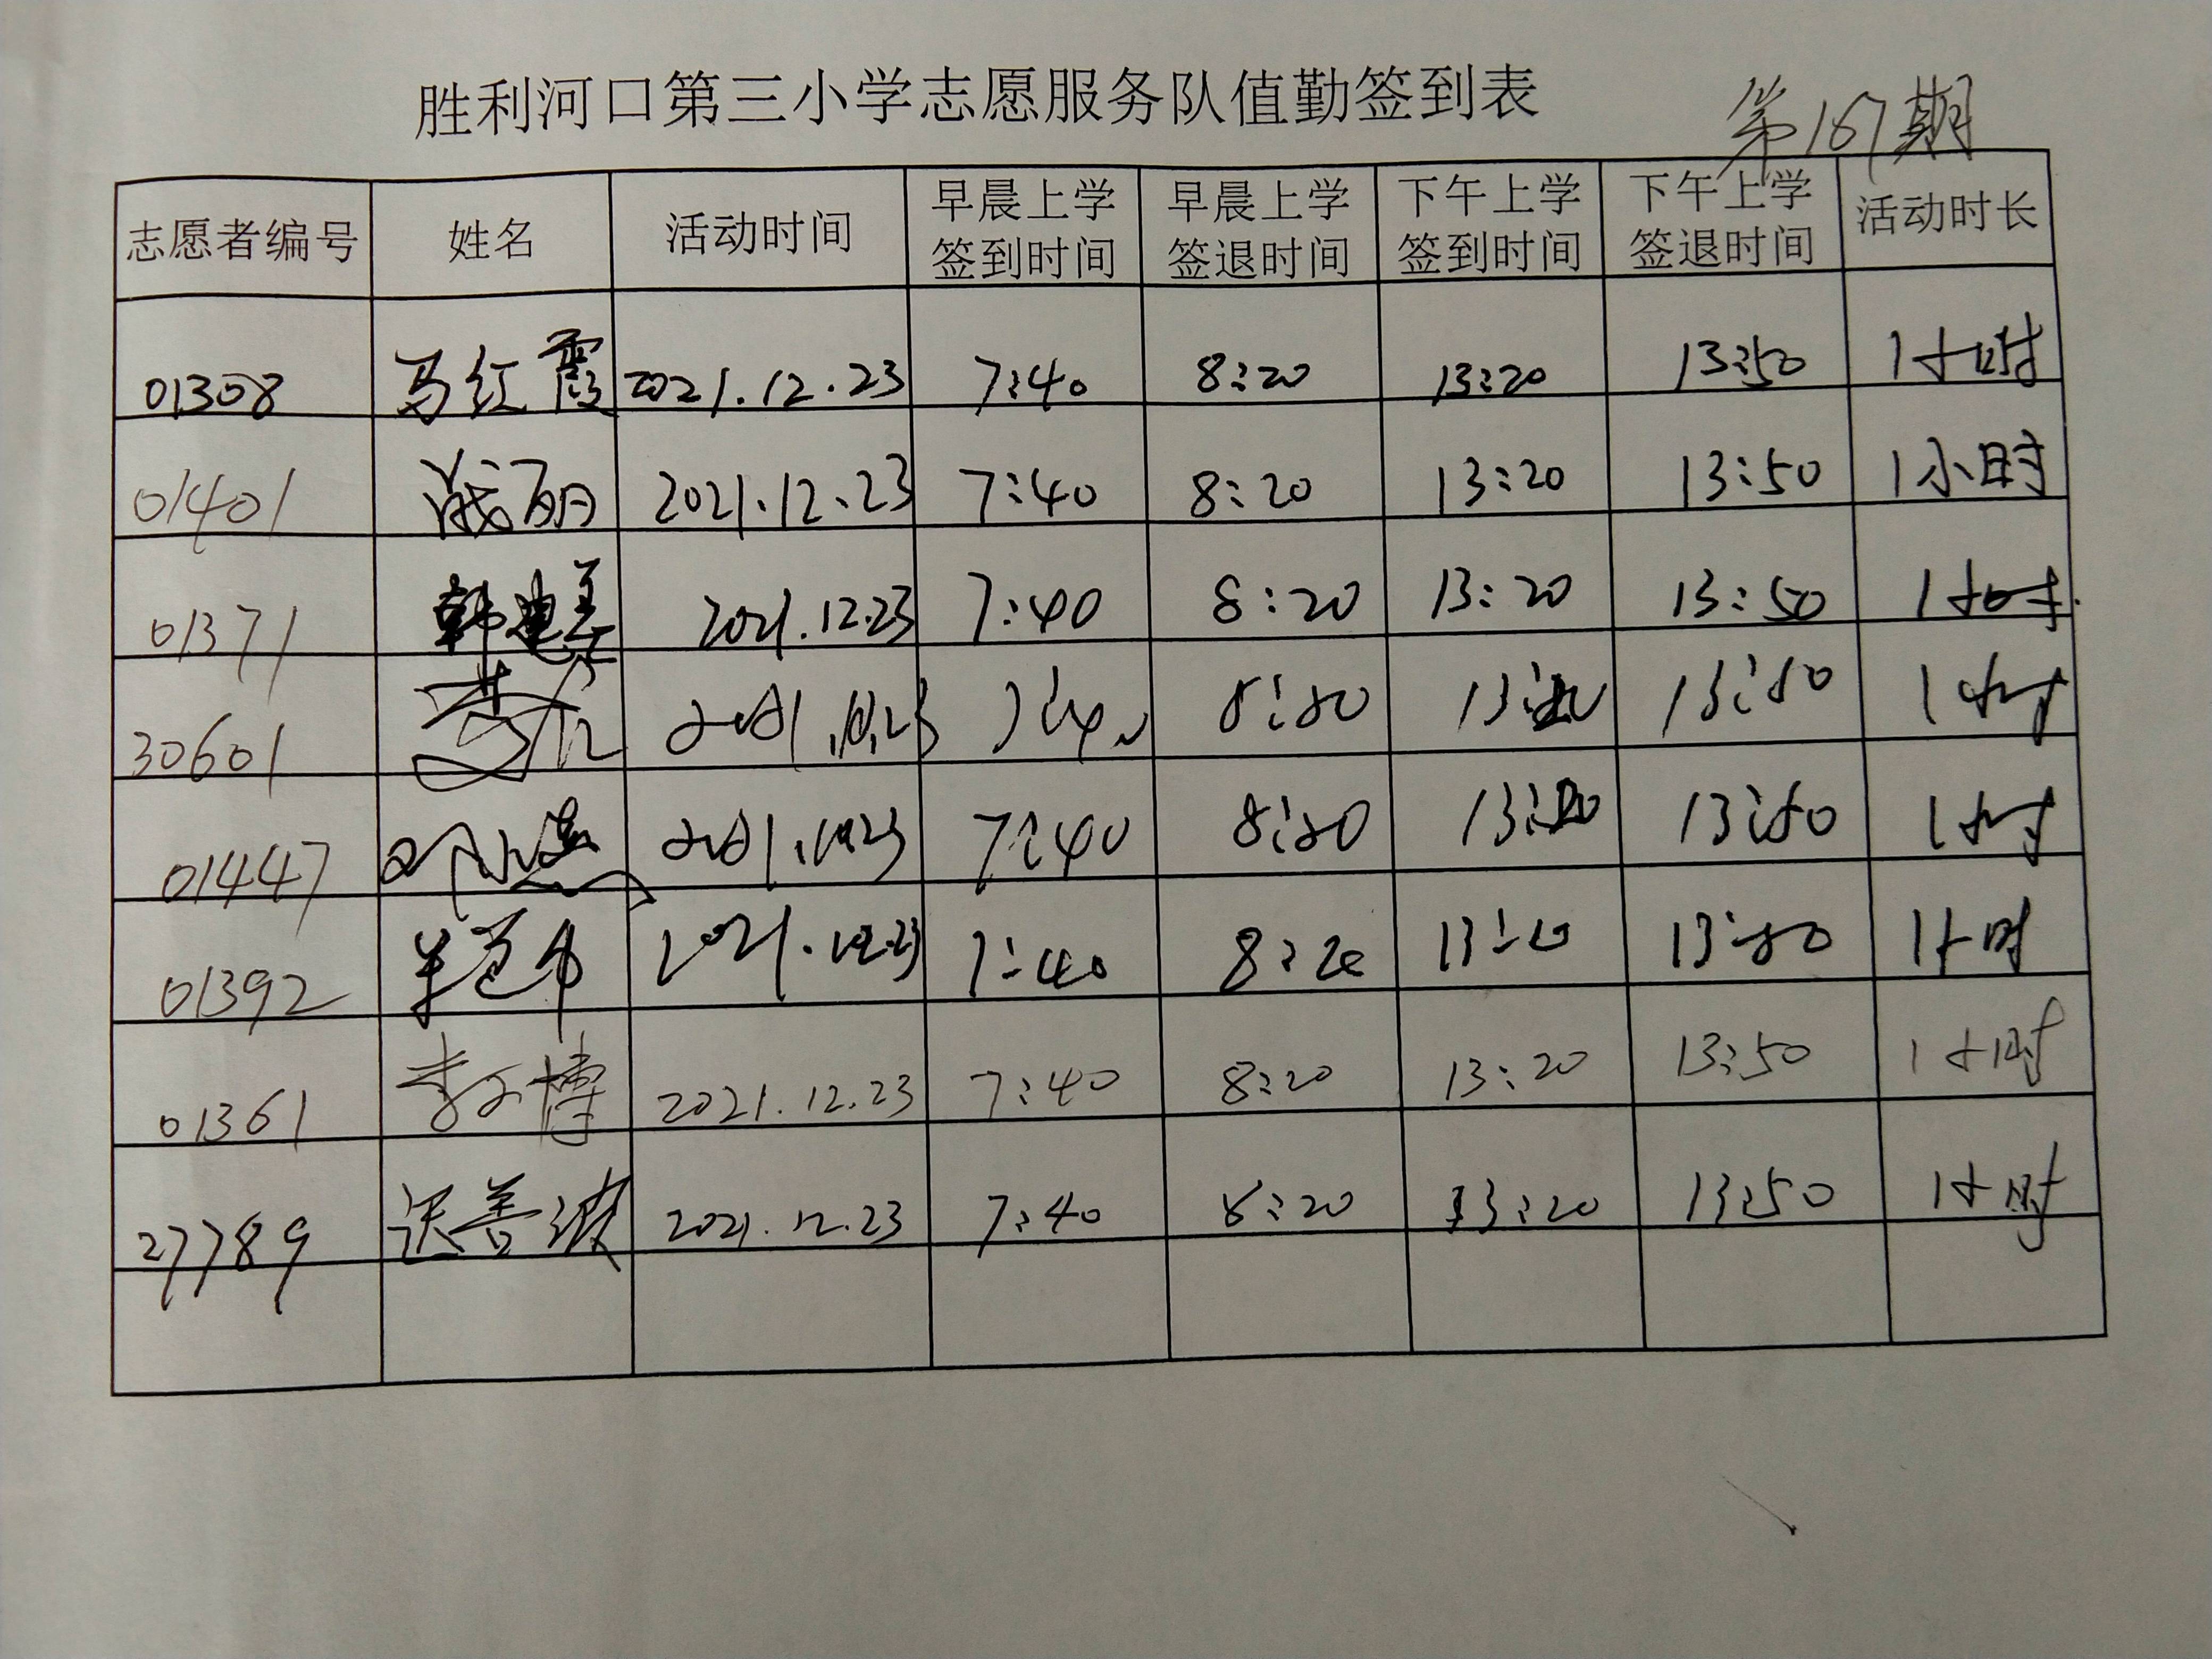 胜利河口第三小学志愿服务队值勤签到表
第167期
志愿者编号 姓名 活动时间 早晨上学签到时间 早晨上学签退时间 下午上学签到时间 下午上学签退时间 活动时长
01308 马红霞 2021.12.23 7:40 8:20 13:20 13:50 1小时
01401 丽 2021.12.23 7:40 8:20 13:20 13:50 1小时
01371 韩 2021.12.23 7:40 8:20 13:20 13:50 1小时
30601 2021.12.23 7:40 8:20 13:20 13:50 1小时
01447 2021.12.23 7:40 8:20 13:20 13:50 1小时
01392 2021.12.23 7:40 8:20 13:20 13:50 1小时
01361 李文博 2021.12.23 7:40 8:20 13:20 13:50 1小时
27789 善波 2021.12.23 7:40 8:20 13:20 13:50 1小时